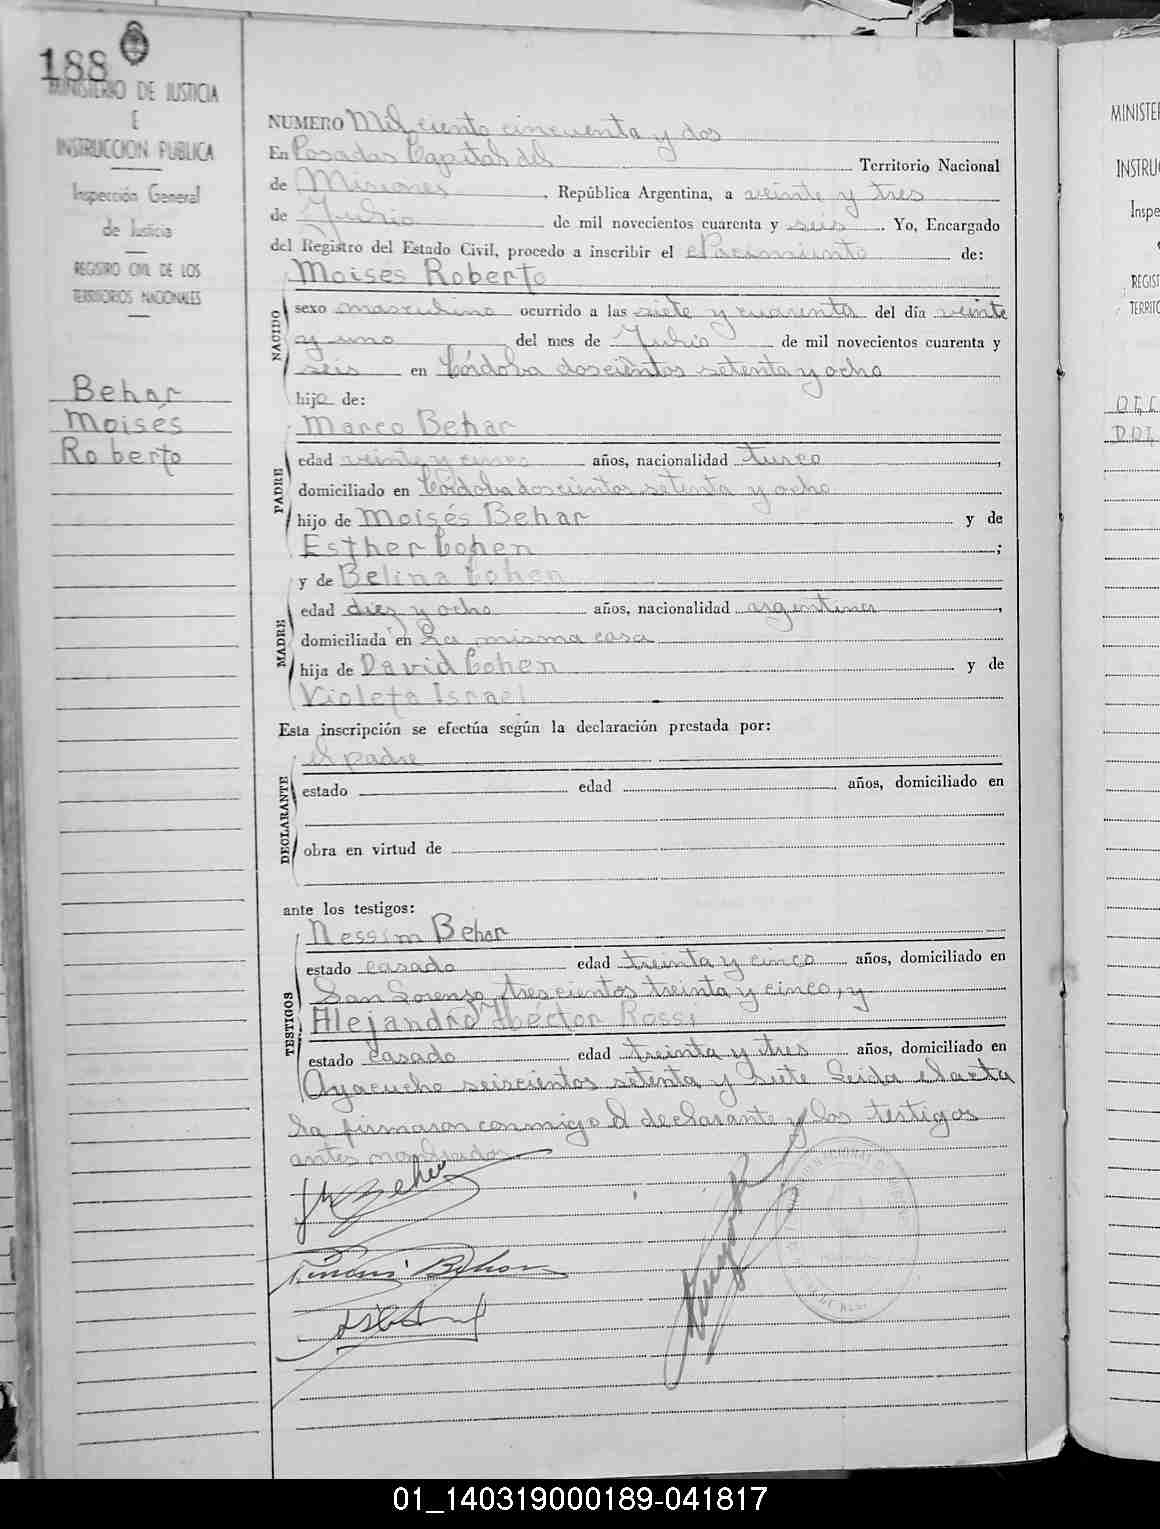 188
MINISTERIO DE JUSTICIA
E
INSTRUCCION PUBLICA
Inspección General
de Justicia
REGISTRO CIVIL DE LOS
TERRITORIOS NACIONALES
Behar
Moisés
Roberto
NUMERO Mil ciento cincuenta y dos
En Posadas Capital del Territorio Nacional
de Misiones, República Argentina, a veinte y tres
de Julio de mil novecientos cuarenta y seis. Yo, Encargado
del Registro del Estado Civil, procedo a inscribir el Nacimiento de:
Moises Roberto
NACIDO
sexo masculino ocurrido a las siete y cuarenta del día veinte
y uno del mes de Julio de mil novecientos cuarenta y
seis en Córdoba doscientos setenta y ocho
hijo de:
Marco Behar
PADRE
edad veinte y cinco años, nacionalidad turco,
domiciliado en Córdoba doscientos setenta y ocho
hijo de Moisés Behar y de
Esther Cohen;
y de Belina Cohen
MADRE
edad diez y ocho años, nacionalidad argentina,
domiciliada en La misma casa
hija de David Cohen y de
Violeta Israel
Esta inscripción se efectúa según la declaración prestada por:
el padre
DECLARANTE
estado edad años, domiciliado en
obra en virtud de
ante los testigos:
Nessim Behar
TESTIGOS
estado casado edad treinta y cinco años, domiciliado en
San Lorenzo trescientos treinta y cinco, y
Alejandro Héctor Rossi
estado casado edad treinta y tres años, domiciliado en
Ayacucho seiscientos setenta y siete Leida el acta
la firmaron conmigo el declarante y los testigos
antes nombrados.
Behar
MINISTE
INSTRU
Inspe
REGIS
TERRITO
01_140319000189-041817